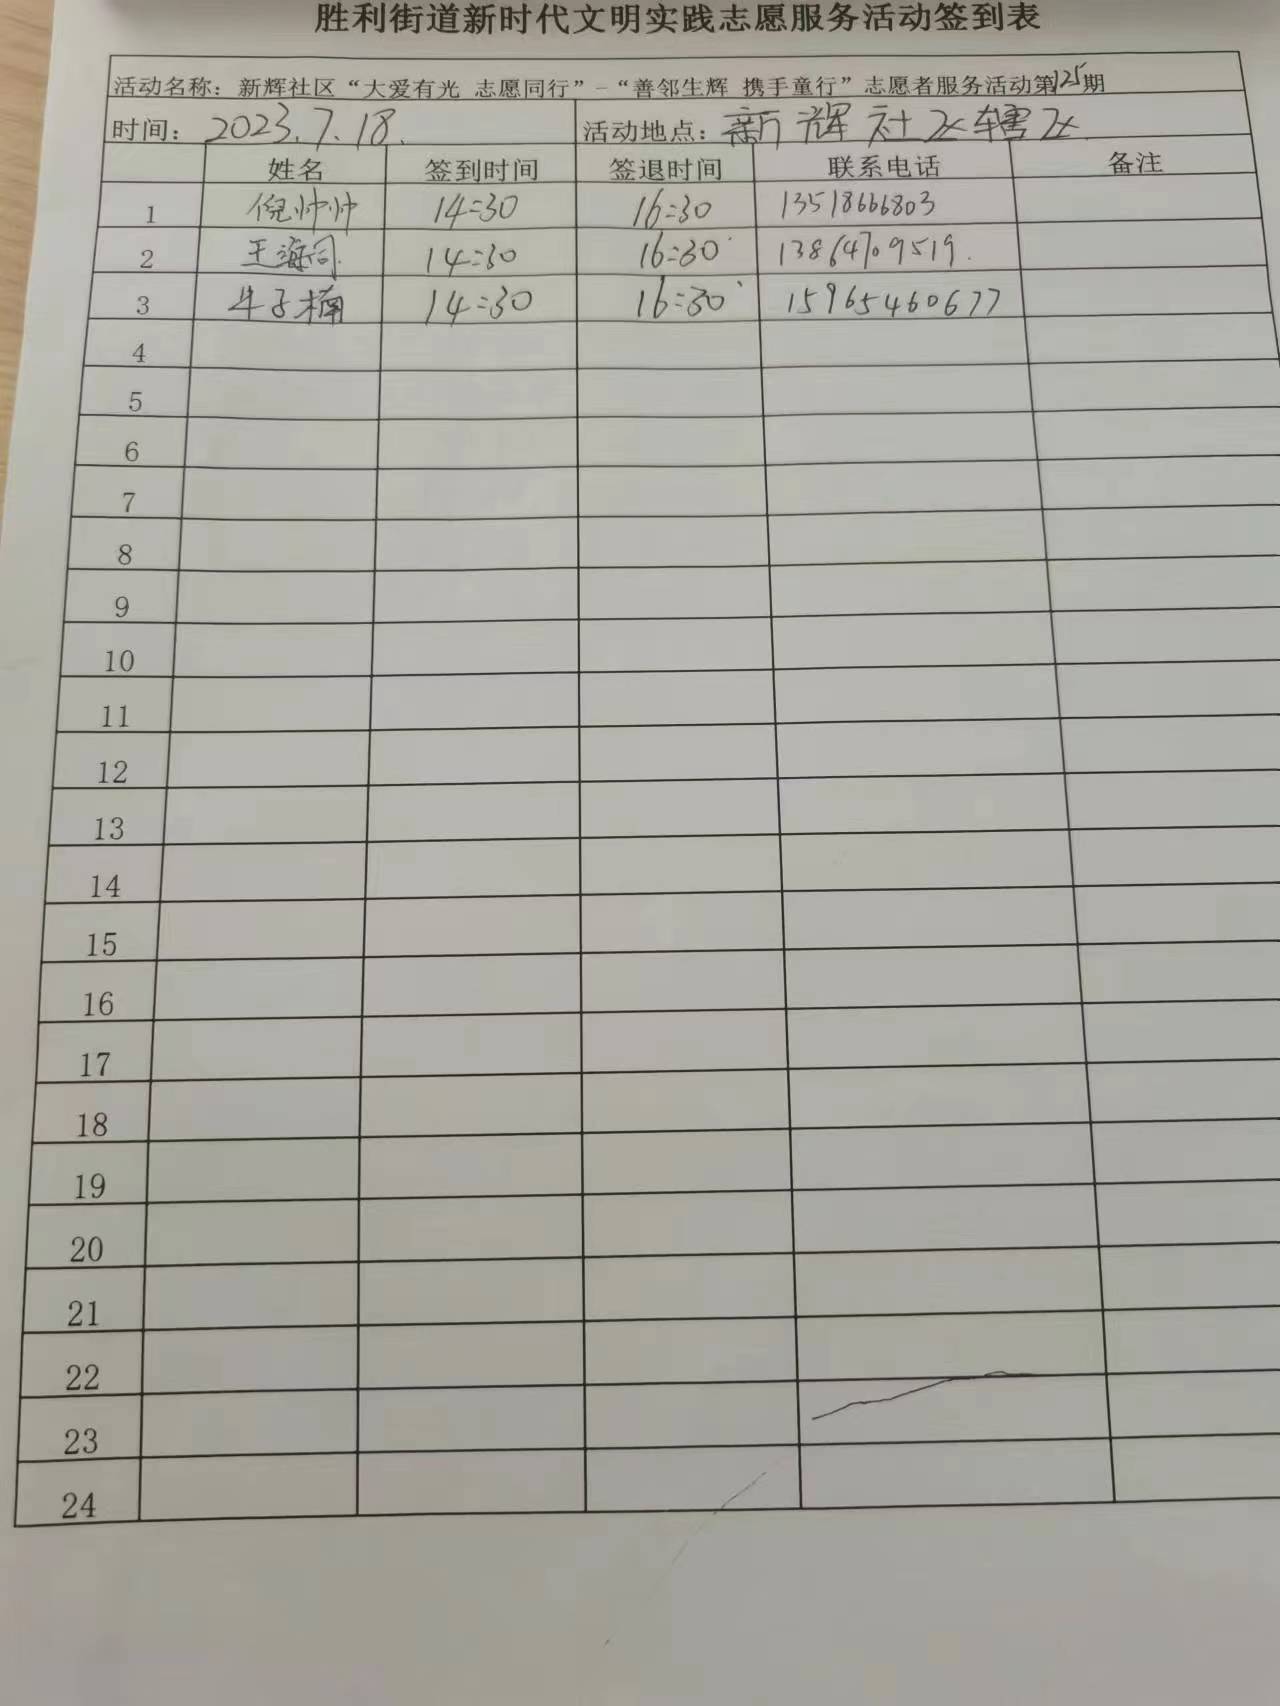 胜利街道新时代文明实践志愿服务活动签到表
活动名称：新辉社区“大爱有光 志愿同行”-“善邻生辉 携手童行”志愿者服务活动第125期
时间：2023.7.18. 活动地点：新辉社区辖区
姓名 签到时间 签退时间 联系电话 备注
1 倪帅帅 14:30 16:30 13518666803
2 王海司 14:30 16:30 13864709519.
3 牛子楠 14:30 16:30 15965460677
4
5
6
7
8
9
10
11
12
13
14
15
16
17
18
19
20
21
22
23
24